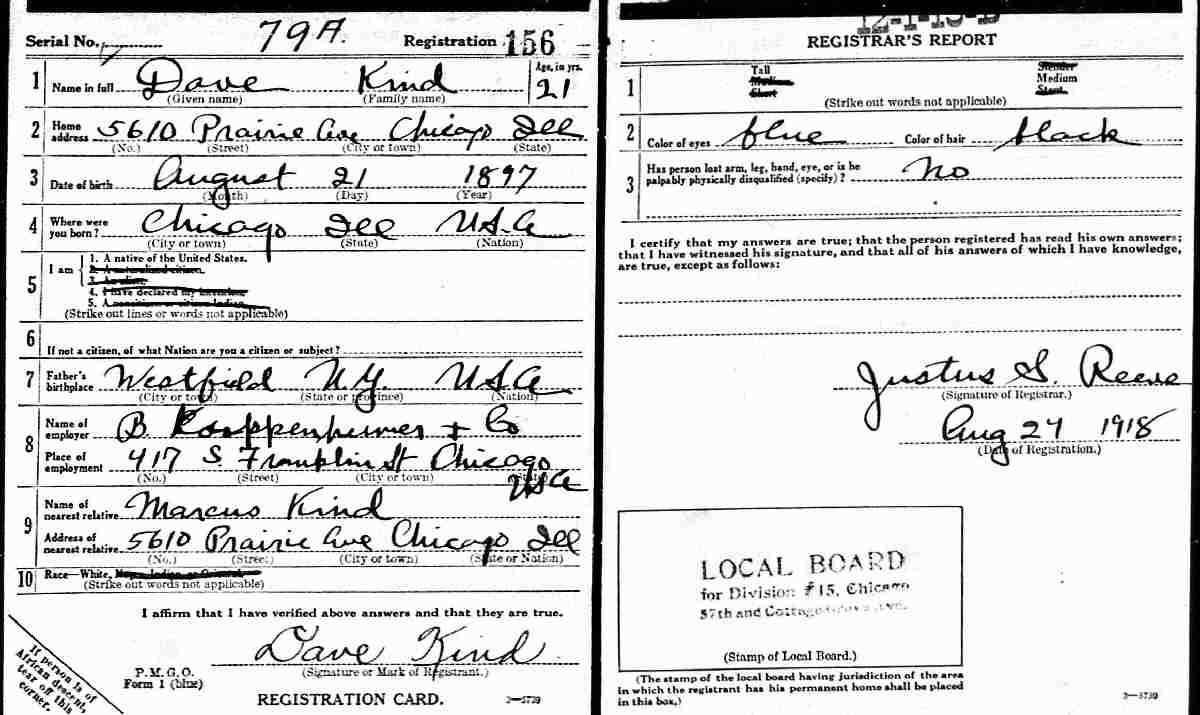 Serial No. 79A. Registration 156
1 Name in full Dave Kind Age, in yrs. 21
(Given name) (Family name)
2 Home address 5610 Prairie Ave Chicago Ill
(No.) (Street) (City or town) (State)
3 Date of birth August 21 1897
(Month) (Day) (Year)
4 Where were you born? Chicago Ill USA
(City or town) (State) (Nation)
5 I am
1. A native of the United States.
2. A naturalized citizen.
3. An alien.
4. I have declared my intention.
5. A noncitizen or citizen Indian.
(Strike out lines or words not applicable)
6 If not a citizen, of what Nation are you a citizen or subject?
7 Father's birthplace Westfield N.Y. USA
(City or town) (State or province) (Nation)
8 Name of employer B. Kuppenheimer + Co
Place of employment 417 S. Franklin St Chicago
USA
(No.) (Street) (City or town) (State)
9 Name of nearest relative Marcus Kind
Address of nearest relative 5610 Prairie Ave Chicago Ill
(No.) (Street) (City or town) (State or Nation)
10 Race—White,
(Strike out words not applicable)
I affirm that I have verified above answers and that they are true.
Dave Kind
P.M.G.O.
Form 1 (blue)
(Signature or Mark of Registrant.)
REGISTRATION CARD. 3—5739
If person is of
African descent,
tear off this
corner.
REGISTRAR'S REPORT
1 Tall Slender
Medium Medium
Short Stout
(Strike out words not applicable)
2 Color of eyes blue Color of hair black
3 Has person lost arm, leg, hand, eye, or is he
palpably physically disqualified (specify)? No
I certify that my answers are true; that the person registered has read his own answers;
that I have witnessed his signature, and that all of his answers of which I have knowledge,
are true, except as follows:
Justus S. Reeve
(Signature of Registrar.)
Aug 24 1918
(Date of Registration.)
LOCAL BOARD
for Division #15, Chicago
57th and Cottage Grove Ave.
(Stamp of Local Board.)
(The stamp of the local board having jurisdiction of the area
in which the registrant has his permanent home shall be placed
in this box.)
3—5739